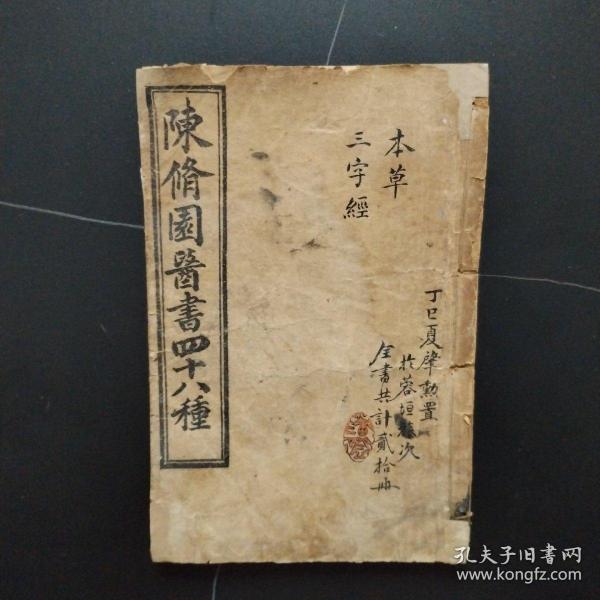 本草
三字經
丁巳夏肇勲置
於蓉垣旅次
全書共計貳拾冊
陳脩園醫書四十八種
孔夫子旧書网
www.kongfz.com